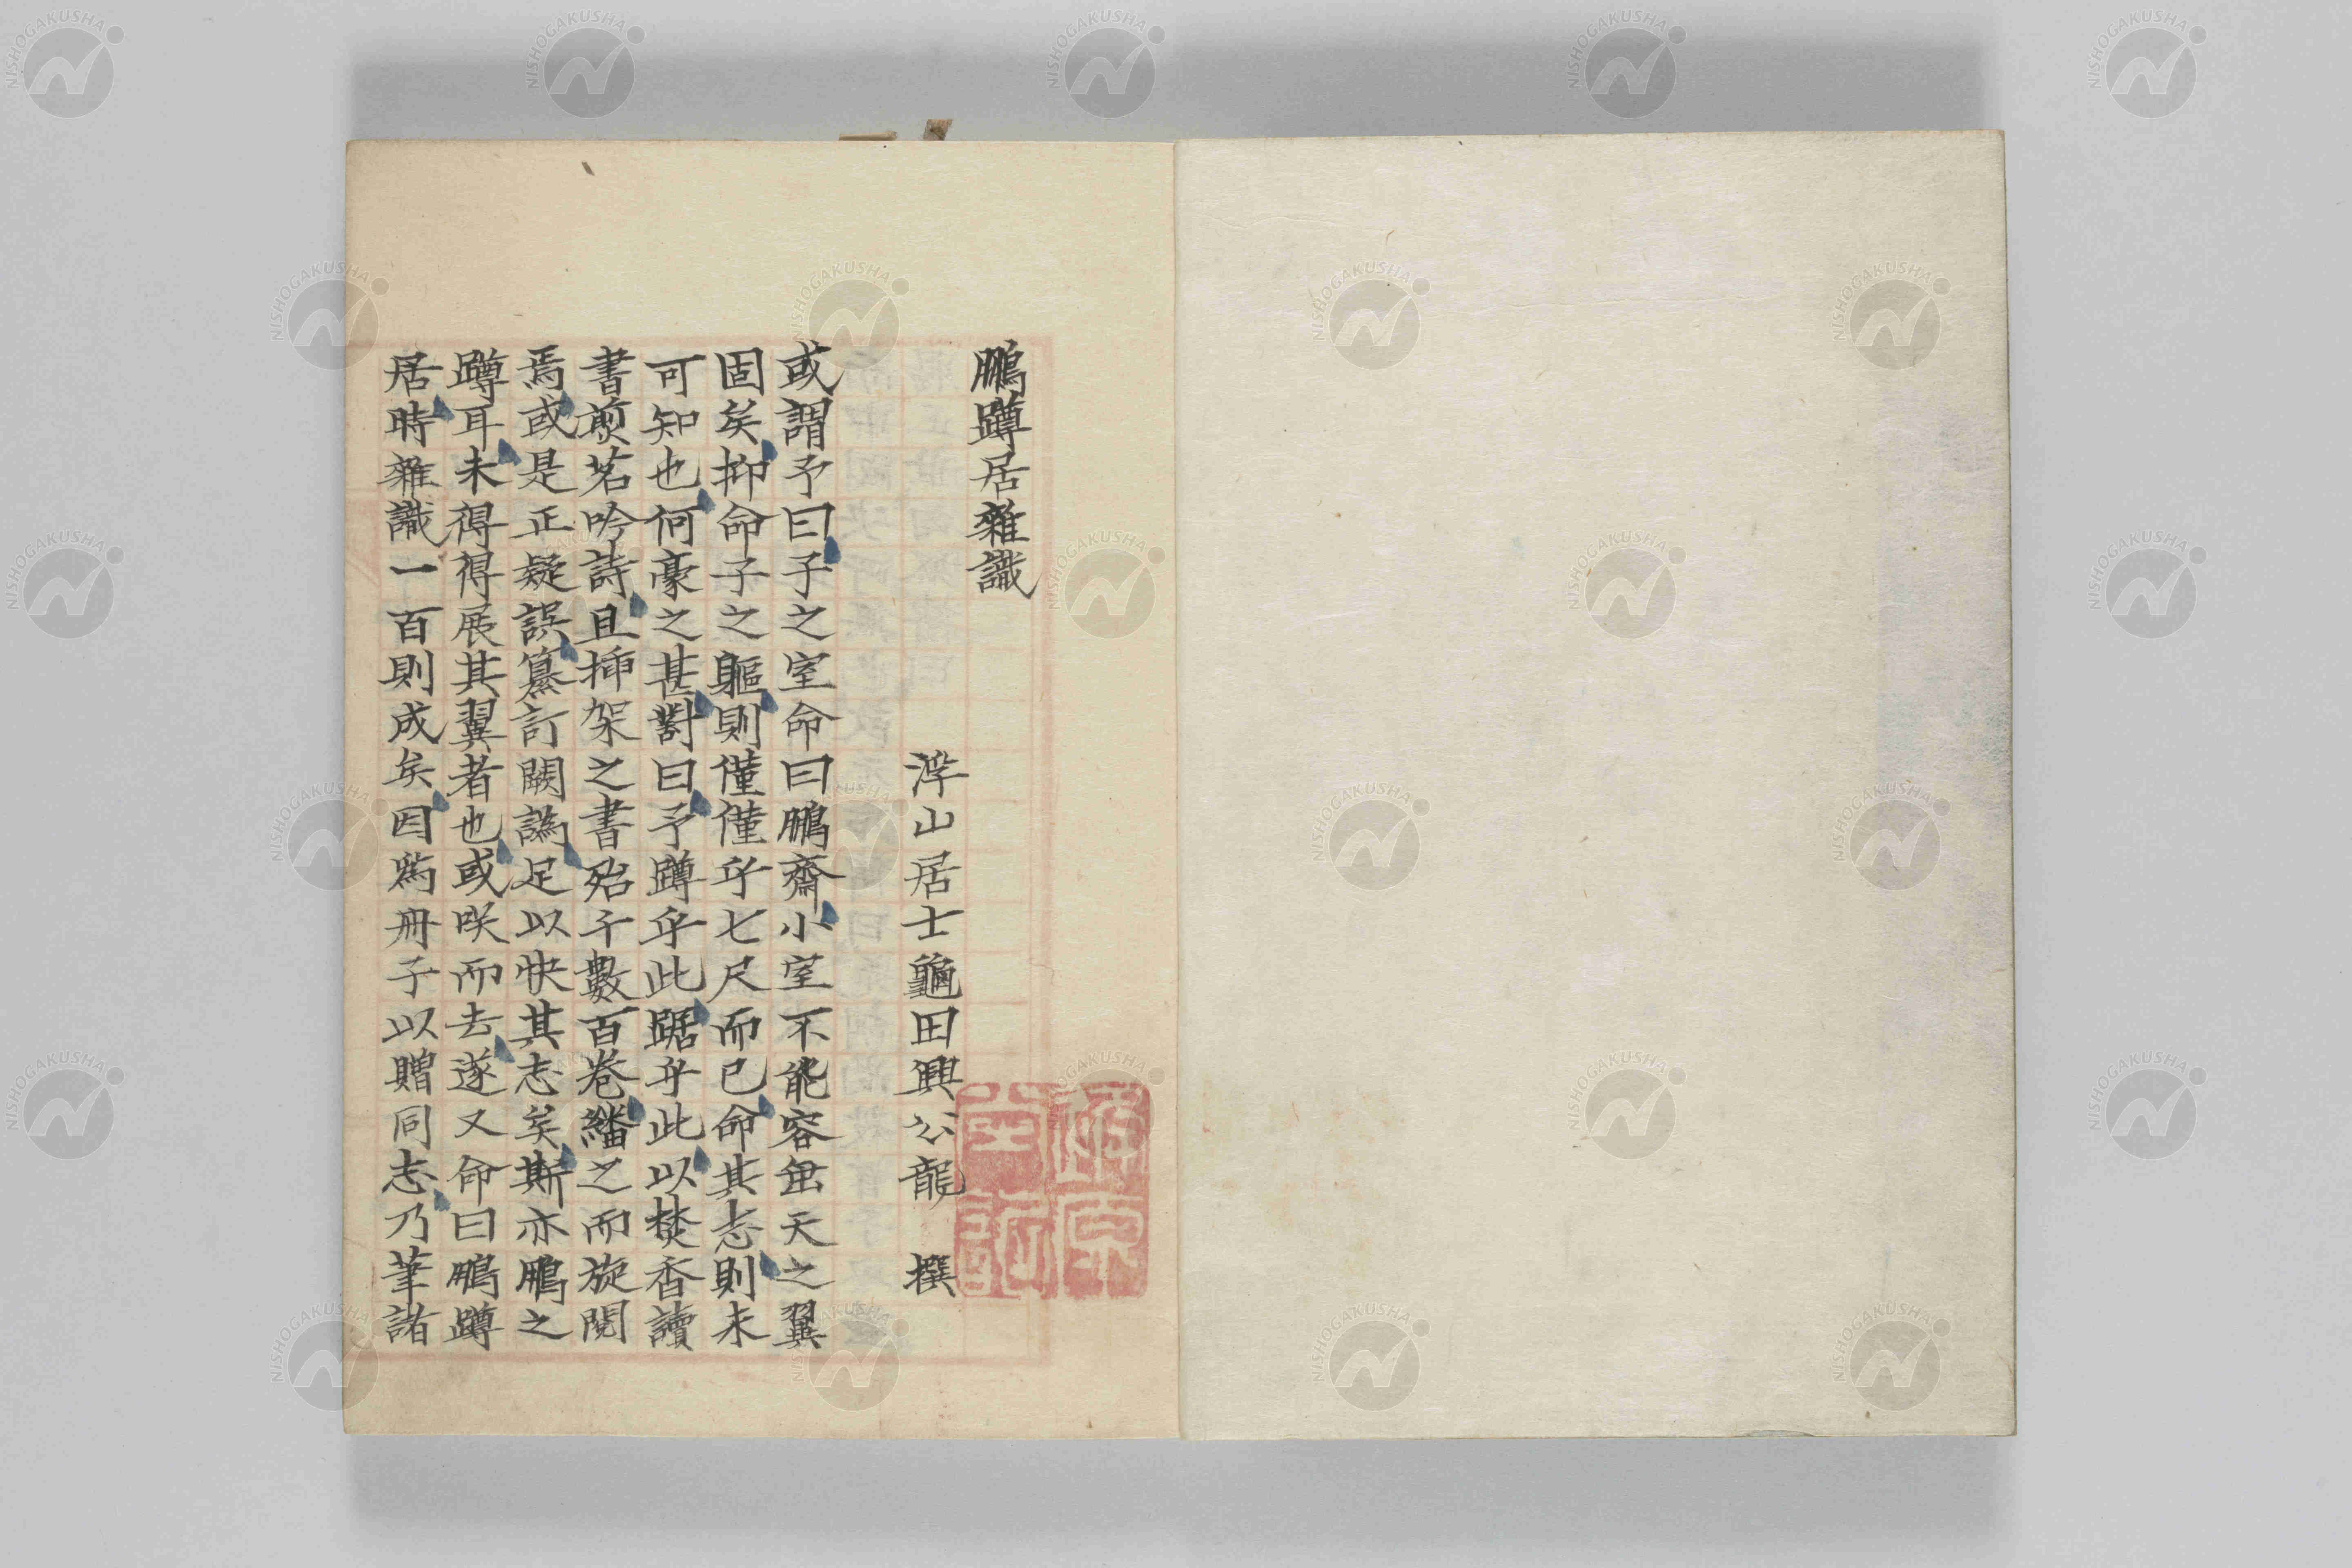 鵬蹲居雜識
浮山居士龜田興公龍 撰
或謂予曰子之室命曰鵬齋小室不能容垂天之翼
固矣抑命子之軀則僅僅乎七尺而已命其志則未
可知也何豪之甚對曰予蹲乎此踞乎此以焚香讀
書煎茗吟詩且揷架之書殆千數百卷繙之而旋閱
焉或是正疑誤纂訂闕譌足以快其志矣斯亦鵬之
蹲耳未得得展其翼者也或咲而去遂又命曰鵬蹲
居時雜識一百則成矣因爲冊子以贈同志乃筆諸
NISHOGAKUSHA